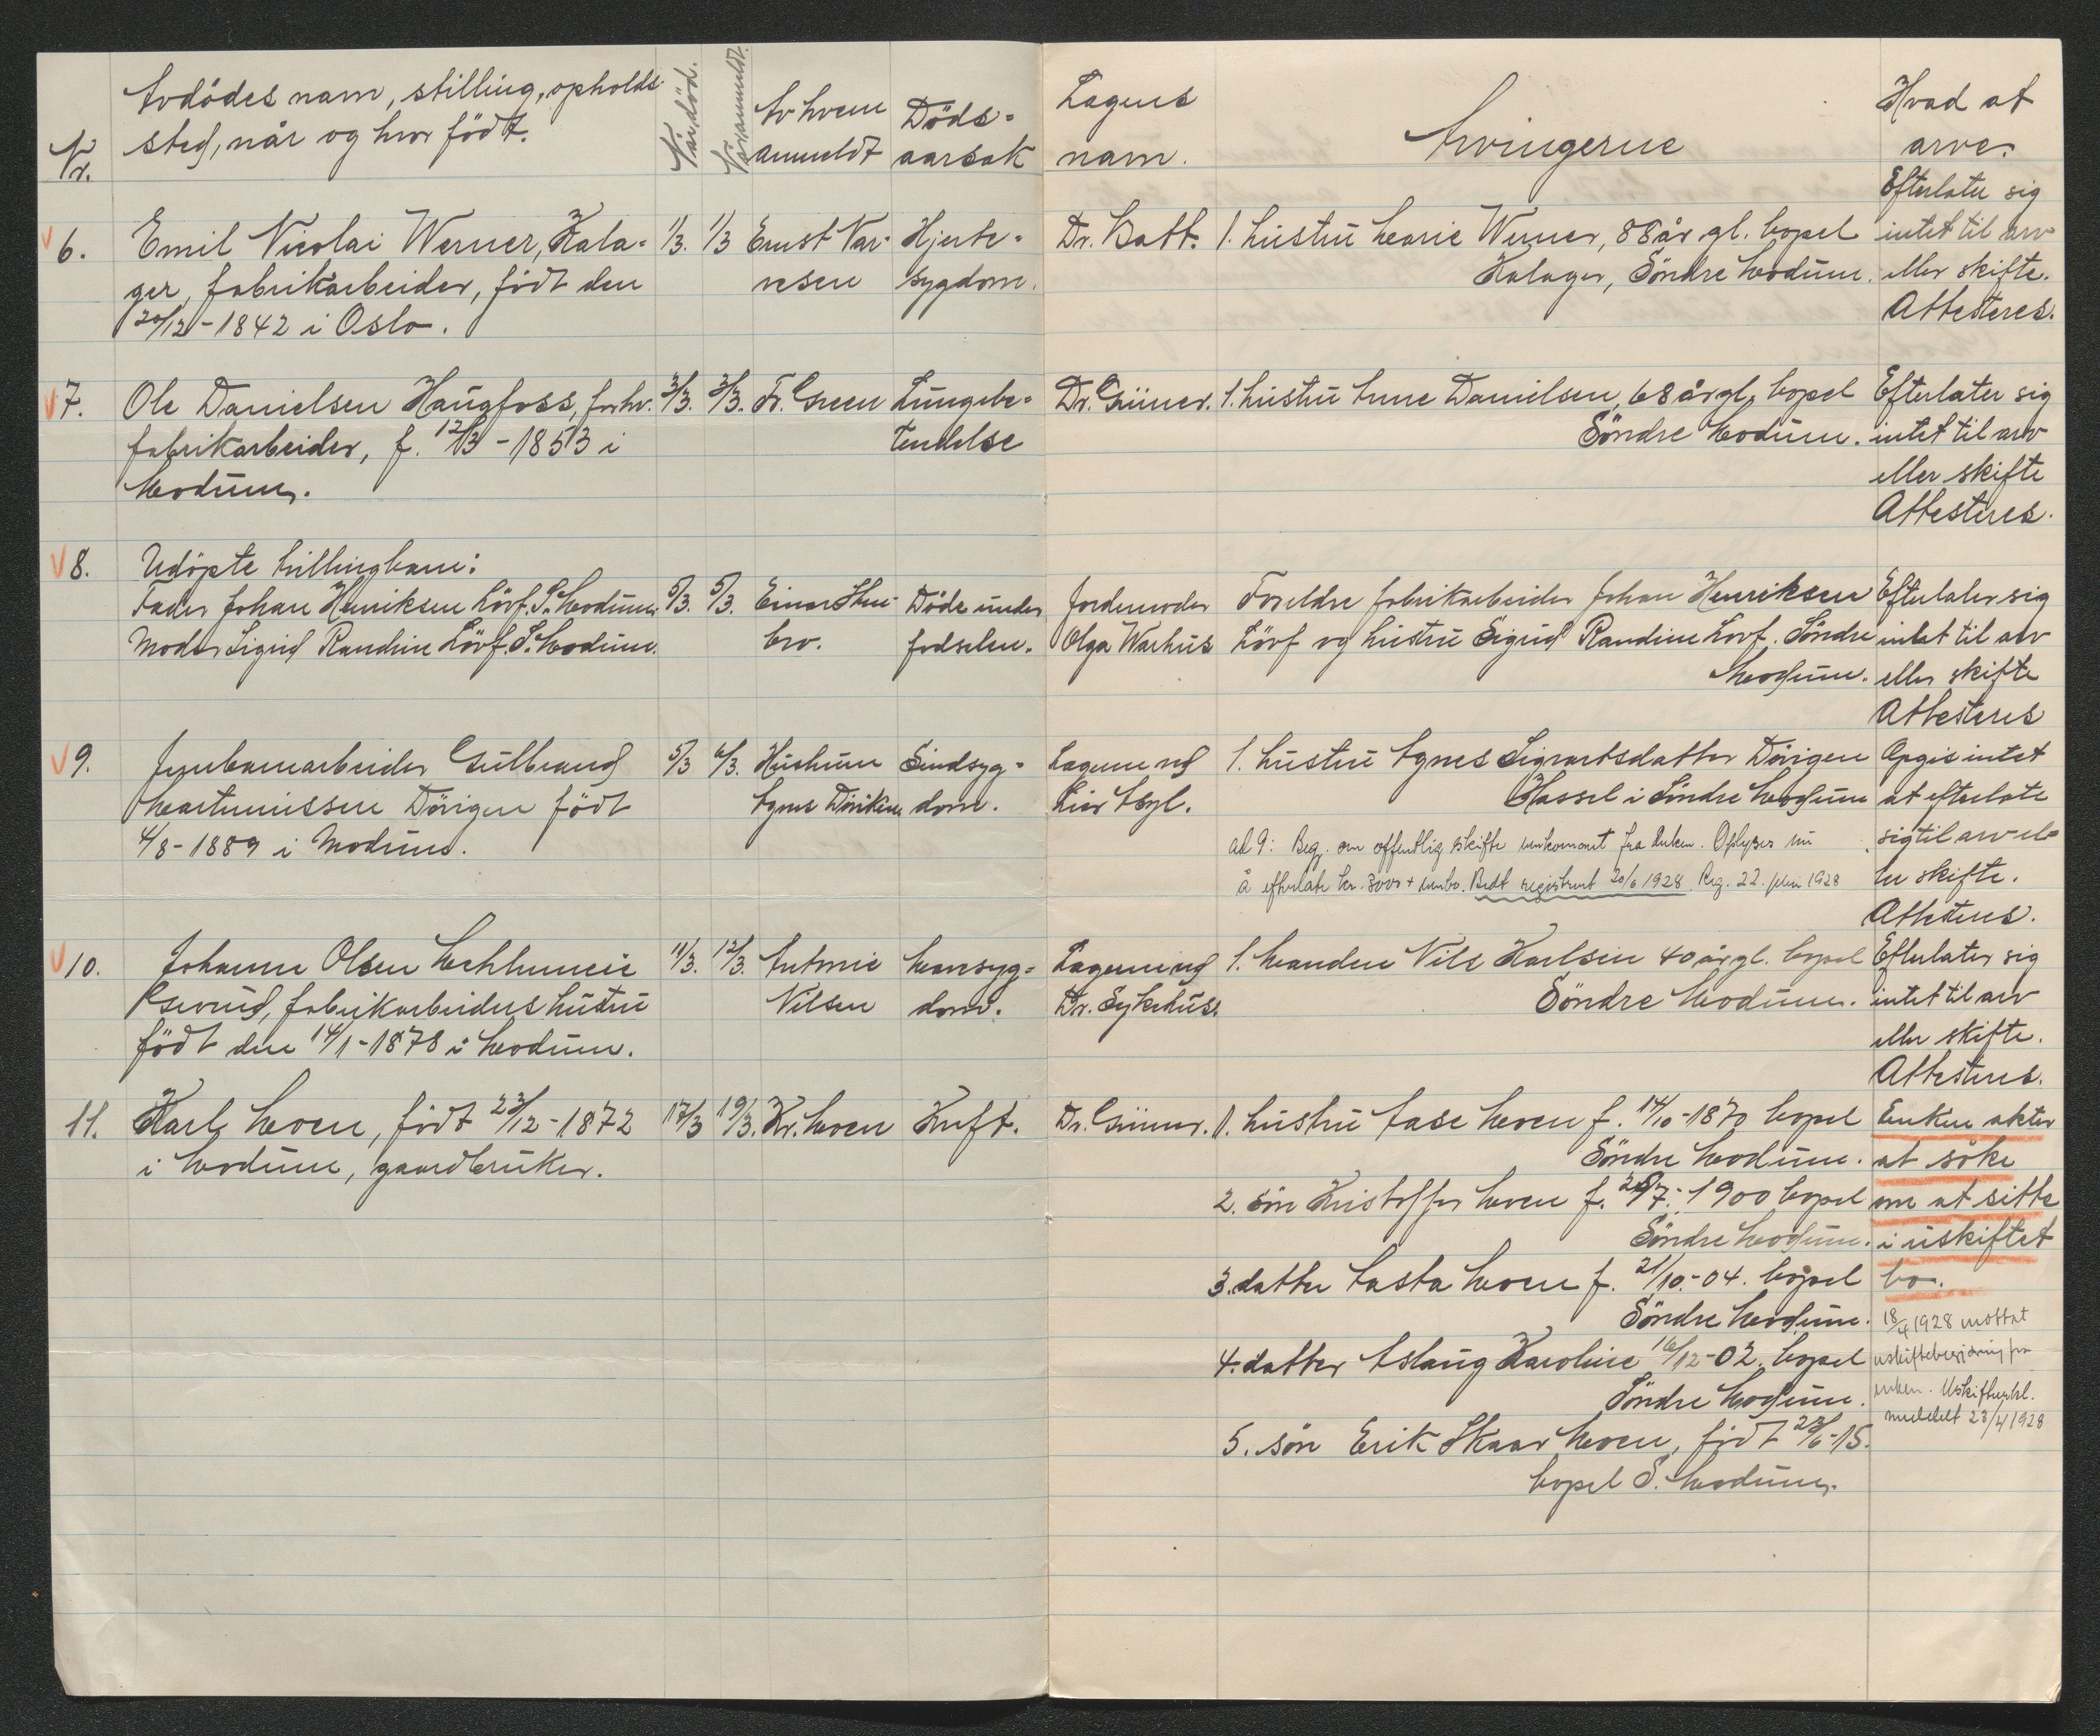 Nr.
Avdödes navn, stilling, opholds-
sted, når og hvor født.
Når död.
Når anmeldt.
Av hvem
anmeldt
Döds-
aarsak
Lægens
navn.
Arvingerne
Hvad at
arve.
6.
Emil Nicolai Werner, Kala-
ger, fabrikarbeider, född den
20/12-1842 i Oslo.
1/3.
1/3
Ernst Var-
Hjerte-
sygdom.
Dr. Batt.
1. Hustru Marie Werner, 88 år gl. bopel
Kalager, Söndre Modum.
Efterlater sig
intet til arv
eller skifte.
Attesteres.
7.
Ole Danielsen Haugfoss, forhv.
fabrikarbeider, f. 12/3-1853 i
Modum.
3/3.
3/3.
Fr. Green
Lungebe-
tendelse
Dr. Grüner.
1. Hustru Anne Danielsen, 68 år gl., bopel
Söndre Modum.
Efterlater sig
intet til arv
eller skifte
Attesteres.
8.
Udöpte tvillingbarn:
Fader Johan Henriksen Lövf. S. Modum.
Moder Sigrid Randine Lövf. S. Modum.
5/3.
5/3.
Einar Sken-
bro.
Döde under
fodselen.
Jordemoder
Olga Warhus
Foreldre fabrikarbeider Johan Henriksen
Lövf og hustru Sigrid Randine Lovf. Söndre
Modum.
Efterlater sig
intet til arv
eller skifte
Attesteres
9.
Jernbanearbeider Gulbrand
Martinussen Dövigen født
4/8-1889 i Modum.
5/3
6/3.
Hustruen
Agnes
Sindsyg-
dom.
Lægene ved
Lier Asyl.
1. Hustru Agnes Sigvartsdatter Dövigen
Hassel i Söndre Modum
ad 9: Beg. om offentlig skifte innkommet fra enken. Oplyses nu
å efterlate kr. 3000 + innbo. Bedt registrert 20/6 1928. Reg. 22. juni 1928
Opgis intet
at efterlate
sig til arv el-
ler skifte.
Attesteres.
10.
Johanne Olsen
fabrikarbeiders hustru
född den 14/1-1878 i Modum.
11/3.
12/3.
Antonie
Nilsen
Mavesyg-
dom.
Lægene ved
Dr. Sykehus.
1. Manden Nils Karlsen 40 år gl. bopel
Söndre Modum.
Efterlater sig
intet til arv
eller skifte.
Attesteres.
11.
Karl Moen, född 23/12-1872
i Modum, gaardbruker.
17/3
19/3.
Kr. Moen
Kreft.
Dr. Grüner.
1. Hustru Aase Moen f. 14/10-1870 bopel
Söndre Modum.
2. sön Kristoffer Moen f. 1900 bopel
Söndre Modum.
3. datter Aasta Moen f. 21/10-04. bopel
Söndre Modum.
4. datter Aslaug Karoline 16/12-02. bopel
Söndre Modum.
5. sön Erik Skaar Moen, född 23/6-15.
bopel S. Modum.
Enken akter
at söke
om at sitte
i uskiftet
bo.
18/4 1928 mottat
uskiftebegjæring fra
enken. Uskifteerkl.
meddelt 23/4 1928